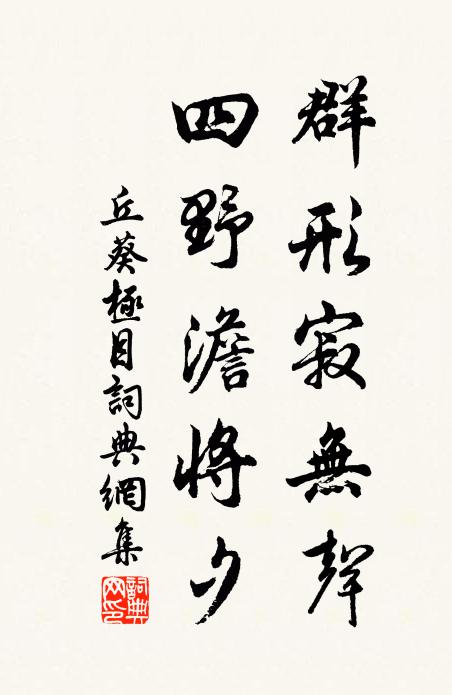 群形寂無聲
四野澹將夕
丘葵極目詞典網集
詞典网印